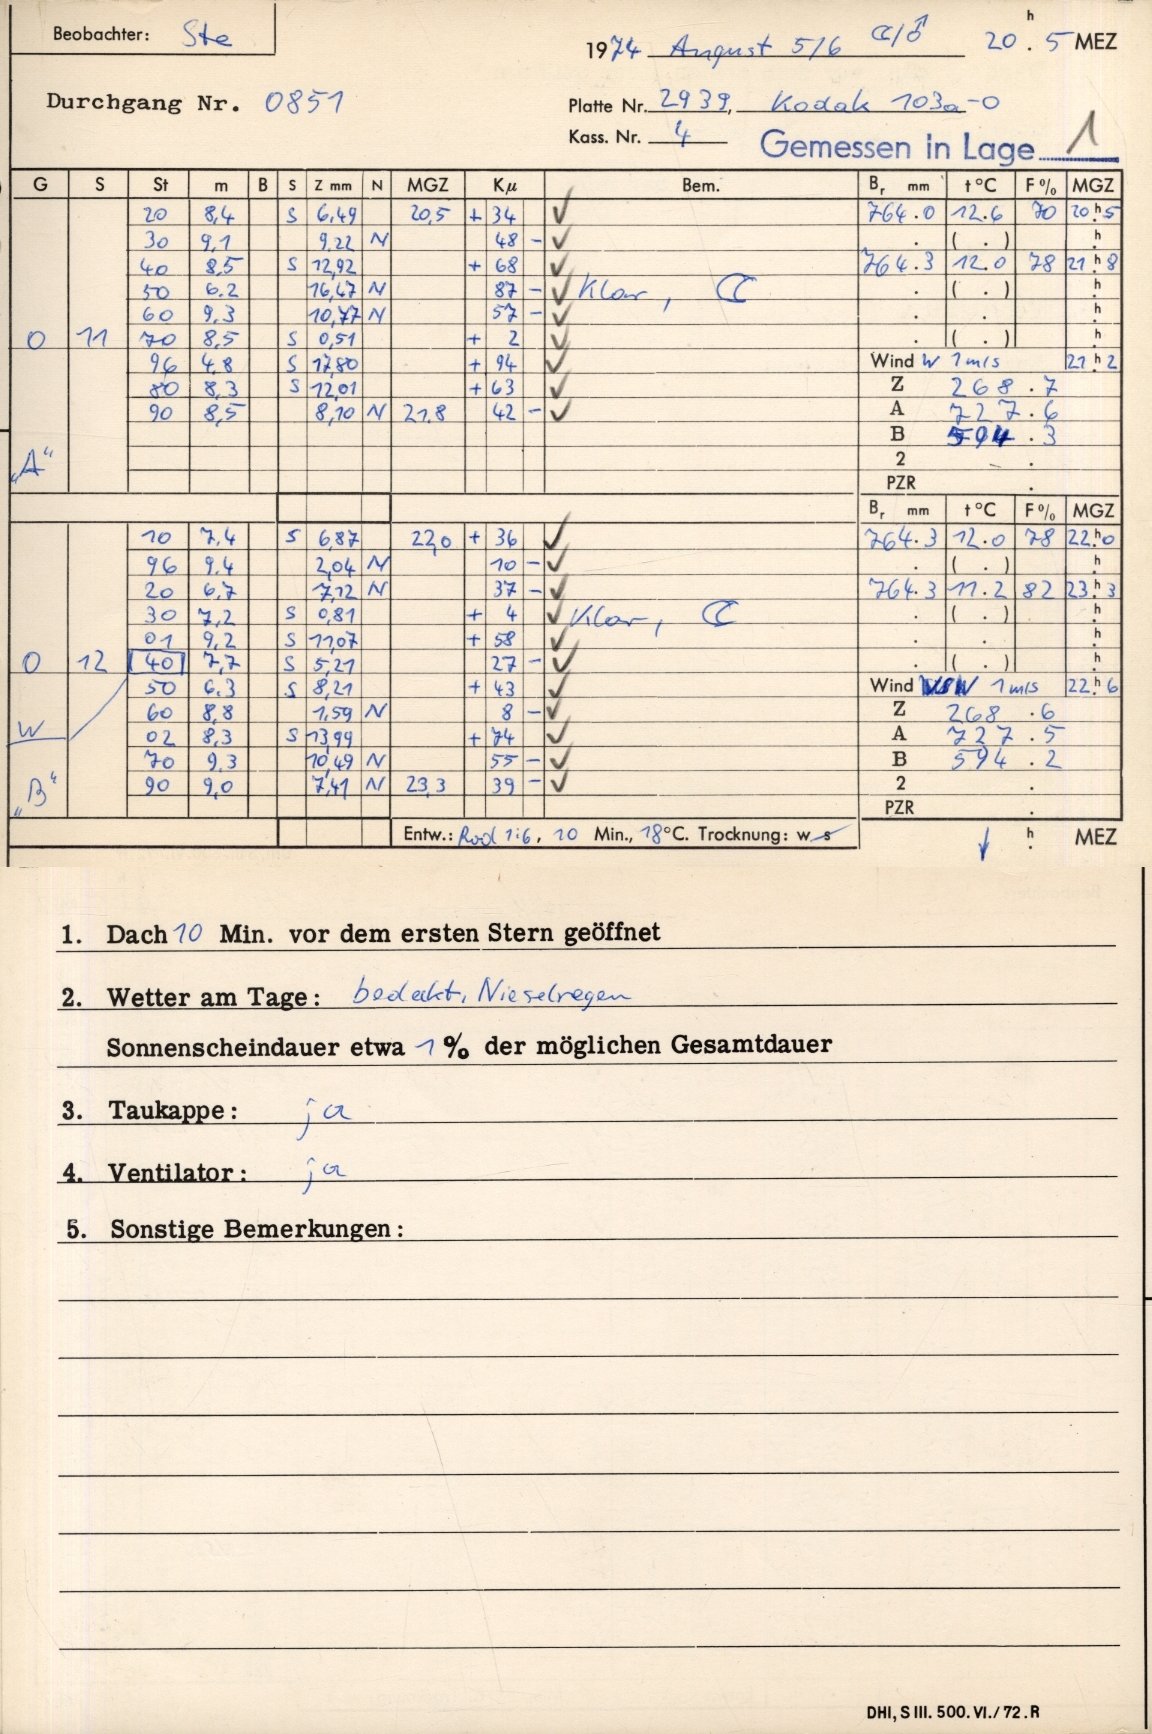 Beobachter: Ste
1974 August 5/6 ☾/♂ 20h.5 MEZ
Durchgang Nr. 0851
Platte Nr. 2939, Kodak 103a-O
Kass. Nr. 4 Gemessen in Lage 1
G S St m B S Z mm N MGZ Kµ Bem. Br mm t °C F % MGZ
20 8,4 S 6,49 20,5 + 34 ✓ 764.0 12.6 70 20h.5
30 9,1 9,22 N 48 - ✓ . ( . ) h.
40 8,5 S 12,92 + 68 ✓ 764.3 12.0 78 21h.8
50 6.2 16,47 N 87 - ✓ Klar, ☾ . ( . ) h.
60 9.3 10,77 N 57 - ✓ . . h.
O 11 70 8,5 S 0,51 + 2 ✓ . ( . ) h.
96 4.8 S 17,80 + 94 ✓ Wind W 1 m/s 21h.2
80 8,3 S 12,01 + 63 ✓ Z 268.7
90 8,5 8,10 N 21.8 42 - ✓ A 727.6
B 594.3
„A“ 2 .
PZR .
Br mm t °C F % MGZ
10 7,4 S 6,87 22,0 + 36 ✓ 764.3 12.0 78 22h.0
96 9.4 2,04 N 10 - ✓ . ( . ) h.
20 6,7 7,12 N 37 - ✓ 764.3 11.2 82 23h.3
30 7,2 S 0,81 + 4 ✓ Klar, ☾ . ( . ) h.
01 9,2 S 11,07 + 58 ✓ . . h.
O 12 40 7,7 S 5,21 27 - ✓ . ( . ) h.
50 6.3 S 8,21 + 43 ✓ Wind WSW 1 m/s 22h.6
60 8,8 1,59 N 8 - ✓ Z 268.6
W 02 8,3 S 13,99 + 74 ✓ A 727.5
70 9,3 10,49 N 55 - ✓ B 594.2
„B“ 90 9,0 7,41 N 23,3 39 - ✓ 2 .
PZR .
Entw.: Rod 1:6, 10 Min., 18°C. Trocknung: w s h. MEZ
1. Dach 10 Min. vor dem ersten Stern geöffnet
2. Wetter am Tage: bedekt, Nieselregen
Sonnenscheindauer etwa 1 % der möglichen Gesamtdauer
3. Taukappe: ja
4. Ventilator: ja
5. Sonstige Bemerkungen:
DHI, S III. 500. VI./72. R